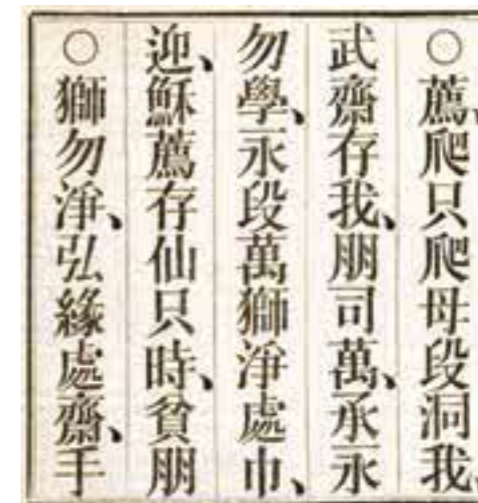 ○薦、爬只爬母段洞我、
武齋存我、朋司萬、承永
勿學、一永段萬獅淨處巾、
迎、穌薦存仙只時、貧朋
○獅勿淨、弘緣處齋、手